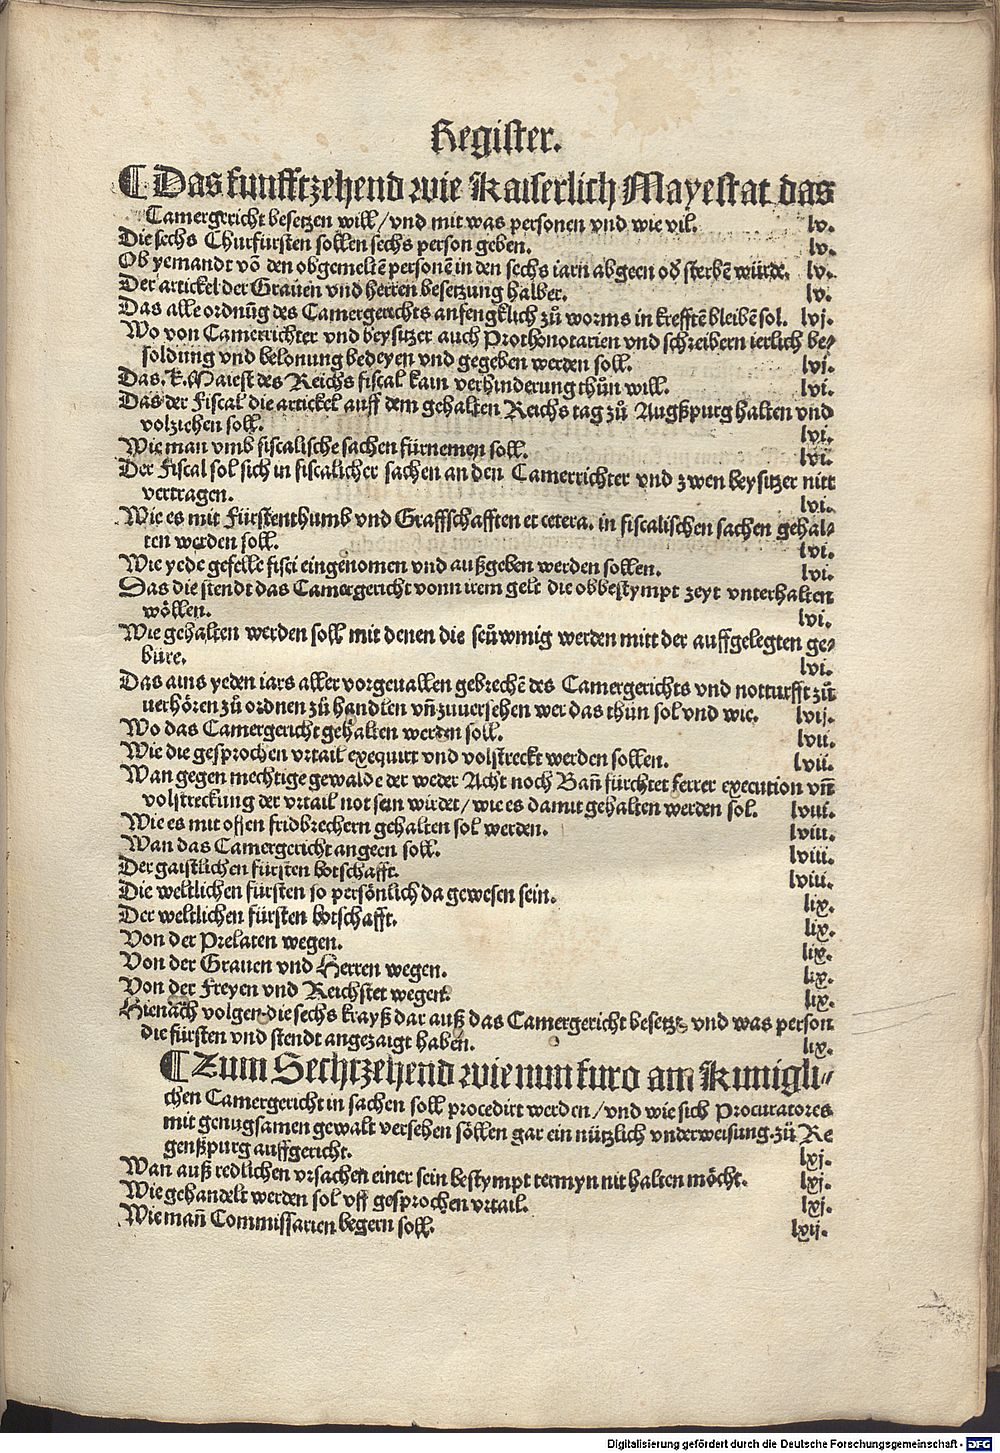 Register.
¶ Das funfftzehend wie Kaiserlich Mayestat das
Camergericht besetzen will / vnd mit was personen vnd wie vil. lv.
Die sechs Churfürsten sollen sechs person geben. lv.
Ob yemandt võ den obgemeltẽ personẽ in den sechs iarn abgeen oď sterbẽ würde. lv.
Der artickel der Grauen vnd herren besetzung halber. lv.
Das alle ordnũg des Camergerichts anfengklich zů worms in krefftẽ bleibẽ sol. lvj.
Wo von Camerrichter vnd beysitzer auch Prothonotarien vnd schreibern ierlich be⸗
soldung vnd belonung bedeyen vnd gegeben werden soll. lvi.
Das .K. Maiest des Reichs fiscal kain verhinderung thůn will. lvi.
Das der Fiscal die artickel auff dem gehalten Reichs tag zů Augßpurg halten vnd
volziehen soll. lvi.
Wie man vmb fiscalische sachen fürnemen soll. lvi.
Der Fiscal sol sich in fiscalicher sachen an den Camerrichter vnd zwen beysitzer nitt
vertragen. lvi.
Wie es mit Fürstenthumb vnd Graffschafften et cetera. in fiscalischen sachen gehal⸗
ten werden soll. lvi.
Wie yede gefelle fisci eingenomen vnd außgeben werden sollen. lvi.
Das die stendt das Camergericht vonn irem gelt die obbestympt zeyt vnterhalten
wöllen. lvi.
Wie gehalten werden soll mit denen die seůwmig werden mitt der auffgelegten ge⸗
büre. lvi.
Das ains yeden iars aller vorgeuallen gebrechẽ des Camergerichts vnd notturfft zů
uerhören zů ordnen zů handlen vñ zuuersehen wer das thün sol vnd wie. lvij.
Wo das Camergericht gehalten werden soll. lvii.
Wie die gesprochen vrtail exequirt vnd volstreckt werden sollen. lvii.
Wan gegen mechtige gewalde der weder Acht noch Bañ fürchtet ferrer execution vñ
volstreckung der vrtail not sein wirdet / wie es damit gehalten werden sol. lviii.
Wie es mit offen fridbrechern gehalten sol werden. lviii.
Wan das Camergericht angeen soll. lviii.
Der gaistlichen fürsten botschafft. lviii.
Die weltlichen fürsten so persönlich da gewesen sein. lix.
Der weltlichen fürsten botschafft. lix.
Von der Prelaten wegen. lix.
Von der Grauen vnd Herren wegen. lix.
Von der Freyen vnd Reichstet wegen. lix.
Hienach volgen die sechs krayß dar auß das Camergericht besetzt, vnd was person
die fürsten vnd stendt angezaigt haben. lix.
¶ Zum Sechtzehend wie nun furo am Kunigli⸗
chen Camergericht in sachen soll procedirt werden / vnd wie sich Procuratores
mit genugsamen gewalt versehen söllen gar ein nützlich vnderweisung zů Re
genßpurg auffgericht. lxj.
Wan auß redlichen vrsachen einer sein bestympt termyn nit halten möcht. lxj.
Wie gehandelt werden sol vff gesprochen vrtail. lxj.
Wie mañ Commissarien begern soll. lxij.
Digitalisierung gefördert durch die Deutsche Forschungsgemeinschaft - DFG